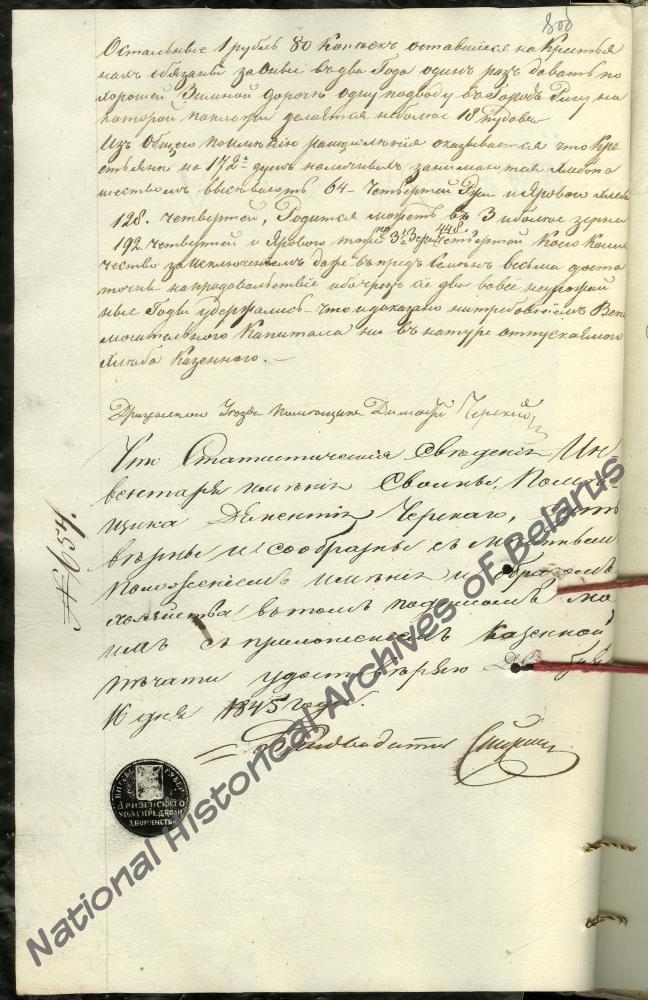 800
Остальные 1 рубль 80 копѣекъ оставшіеся на Крестья
нахъ обязаны за оные въ два года одинъ разъ давать по
хорошей Зимней дорогѣ одну подводу въ Городъ Ригу на
которой поклажи делается не более 18 пудовъ
Изъ общаго по имѣнію расчисленія оказывается что Кре
стьяне на 172 душъ наличныхъ занимаются хлебопа
шествомъ высеваютъ 64 четвертей Ржи и Яроваго хлеба
128. четвертей, Родится можетъ въ 3 и более зерна
192 четвертей и Яроваго тоже по 3 зерна 448 Четвертей Коего Коли
чество за исключеніемъ даже въ предъ Семянъ весьма доста
точны на продовольствіе ибо чрезъ сіе два вовсе неурожай
ные Года удержались что и доказано нитребованіемъ Вспо
могательнаго Капитала ни въ натуре отпускаемаго
хлѣба Казеннаго. —
Дризенскаго Уезда помѣщика Дементія Черскаго
Что Статистическія Свѣденія Ин
вентаря имѣнія Свольны, Помѣ
щика Дементія Черскаго, суть
вѣрны и сообразны съ мѣстнымъ
положеніемъ имѣнія и образомъ
хозяйства въ томъ подписомъ мо
имъ съ приложеніемъ казенной
печати удостовѣряю Декабря
16 дня 1845 года.
Предводитель
№ 654.
ДРИЗЕНСКАГО
УѢЗД. ПРЕДВОДИ.
ДВОРЯНСТВ.
National Historical Archives of Belarus